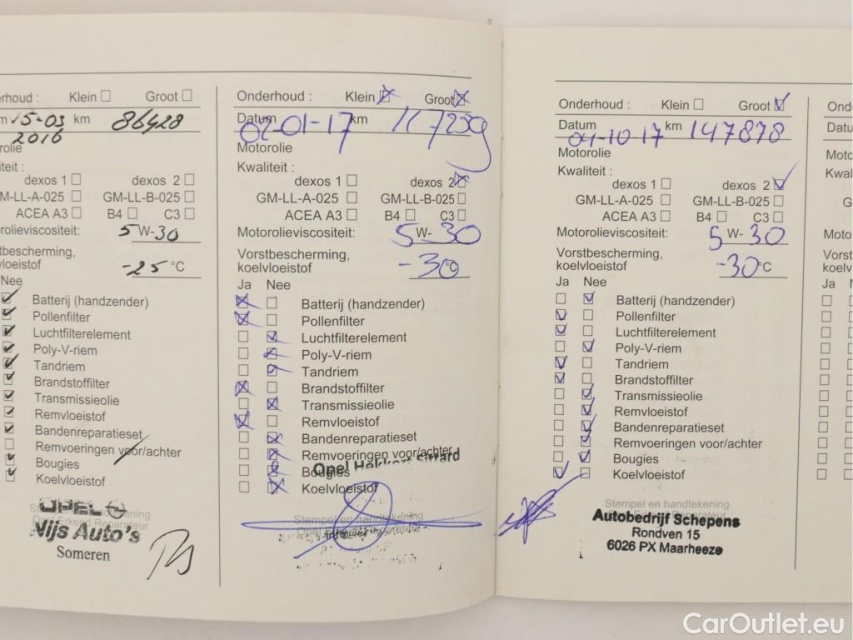 rhoud : Klein Groot
15-03 km 86428
2016
rolie
teit :
dexos 1 dexos 2
M-LL-A-025 GM-LL-B-025
ACEA A3 B4 C3
orolieviscositeit: 5 W-30
tbescherming,
vloeistof -25 °C
Nee
Batterij (handzender)
Pollenfilter
Luchtfilterelement
Poly-V-riem
Tandriem
Brandstoffilter
Transmissieolie
Remvloeistof
Bandenreparatieset
Remvoeringen voor/achter
Bougies
Koelvloeistof
Stempel en handtekening
OPEL
Nijs Auto's
Someren
Onderhoud : Klein Groot
Datum 02-01-17 km 117259
Motorolie
Kwaliteit :
dexos 1 dexos 2
GM-LL-A-025 GM-LL-B-025
ACEA A3 B4 C3
Motorolieviscositeit: 5 W- 30
Vorstbescherming,
koelvloeistof -30 °C
Ja Nee
Batterij (handzender)
Pollenfilter
Luchtfilterelement
Poly-V-riem
Tandriem
Brandstoffilter
Transmissieolie
Remvloeistof
Bandenreparatieset
Remvoeringen voor/achter
Bougies
Koelvloeistof
Opel Sittard
Stempel en handtekening
Onderhoud : Klein Groot
Datum 04-10-17 km 147878
Motorolie
Kwaliteit :
dexos 1 dexos 2
GM-LL-A-025 GM-LL-B-025
ACEA A3 B4 C3
Motorolieviscositeit: 5 W- 30
Vorstbescherming,
koelvloeistof -30 °C
Ja Nee
Batterij (handzender)
Pollenfilter
Luchtfilterelement
Poly-V-riem
Tandriem
Brandstoffilter
Transmissieolie
Remvloeistof
Bandenreparatieset
Remvoeringen voor/achter
Bougies
Koelvloeistof
Stempel en handtekening
Autobedrijf Schepens
Rondven 15
6026 PX Maarheeze
Ond
Datu
Moto
Kwal
G
Moto
Vorst
koelv
Ja
CarOutlet.eu